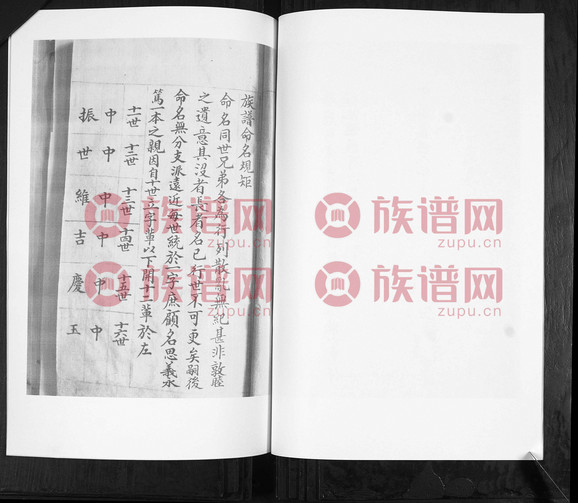 族譜命名規矩
命名同世兄弟各為行列散亂無紀甚非敦睦
之遺意其沒者長者名已行世不可更矣嗣後
命名無分支派遠近每世統於一字庶顧名思義永
篤一本之親因自十世立字輩以下開十二輩於左
十一世 十二世 十三世 十四世 十五世 十六世
中 中 中 中 中 中
振 世 維 吉 慶 玉
族谱网
zupu.cn
族谱网
zupu.cn
族谱网
zupu.cn
族谱网
zupu.cn